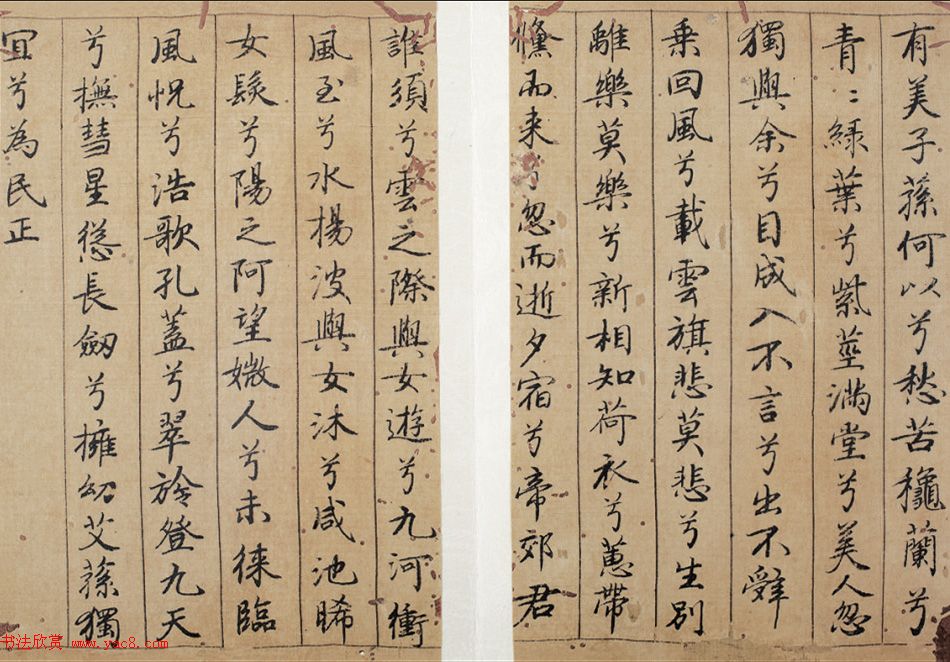 有美子蓀何以兮愁苦穐蘭兮
青〻綠葉兮紫莖滿堂兮美人忽
獨與余兮目成入不言兮出不辤
乗回風兮載雲旗悲莫悲兮生別
離樂莫樂兮新相知荷衣兮蕙帶
儵而来兮忽而逝夕宿兮帝郊君
誰須兮雲之際與女遊兮九河衝
風至兮水揚波與女沐兮咸池晞
女髮兮陽之阿望媺人兮未徠臨
風怳兮浩歌孔蓋兮翠旍登九天
兮撫彗星慫長劒兮擁幼艾蓀獨
宜兮為民正
书法欣赏 www.yac8.com